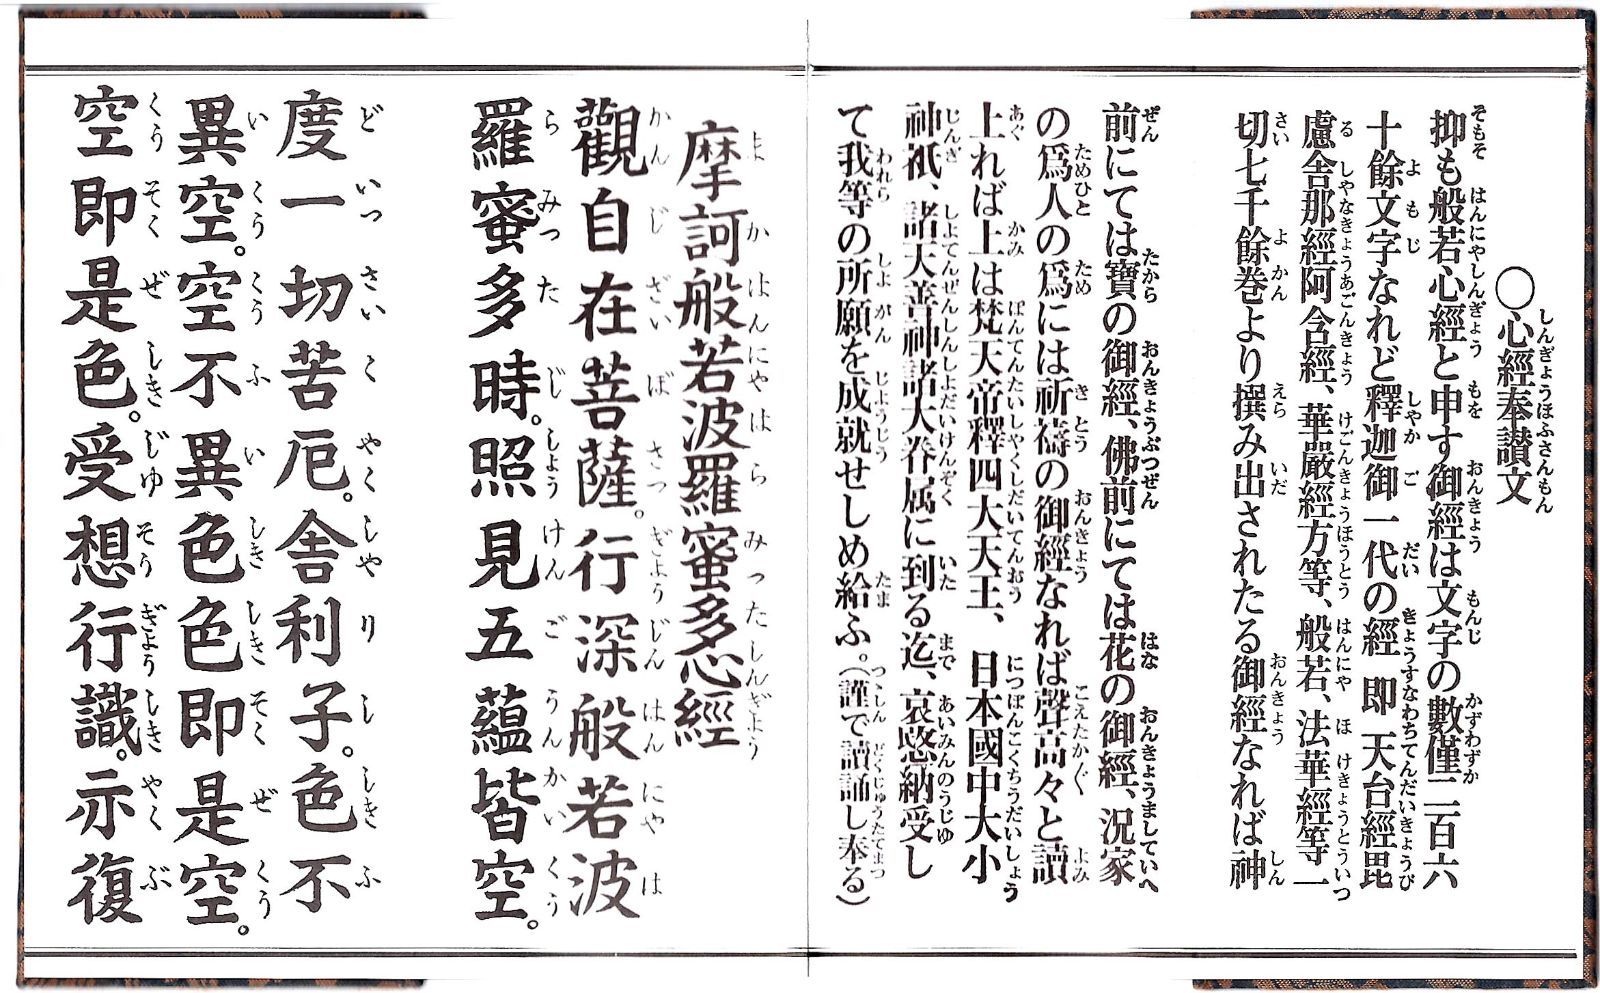 〇心經奉讃文
抑も般若心經と申す御經は文字の數僅二百六
十餘文字なれど釋迦御一代の經即天台經毘
盧舎那經阿含經、華嚴經方等、般若、法華經等一
切七千餘巻より撰み出されたる御經なれば神
前にては寶の御經、佛前にては花の御經、況家
の爲人の爲には祈禱の御經なれば聲高々と讀
上れば上は梵天帝釋四大天王、日本國中大小
神祇、諸天善神諸大眷属に到る迄、哀愍納受し
て我等の所願を成就せしめ給ふ。(謹で讀誦し奉る)
摩訶般若波羅蜜多心經
觀自在菩薩。行深般若波
羅蜜多時。照見五蘊皆空。
度一切苦厄。舎利子。色不
異空。空不異色色即是空。
空即是色。受想行識。亦復